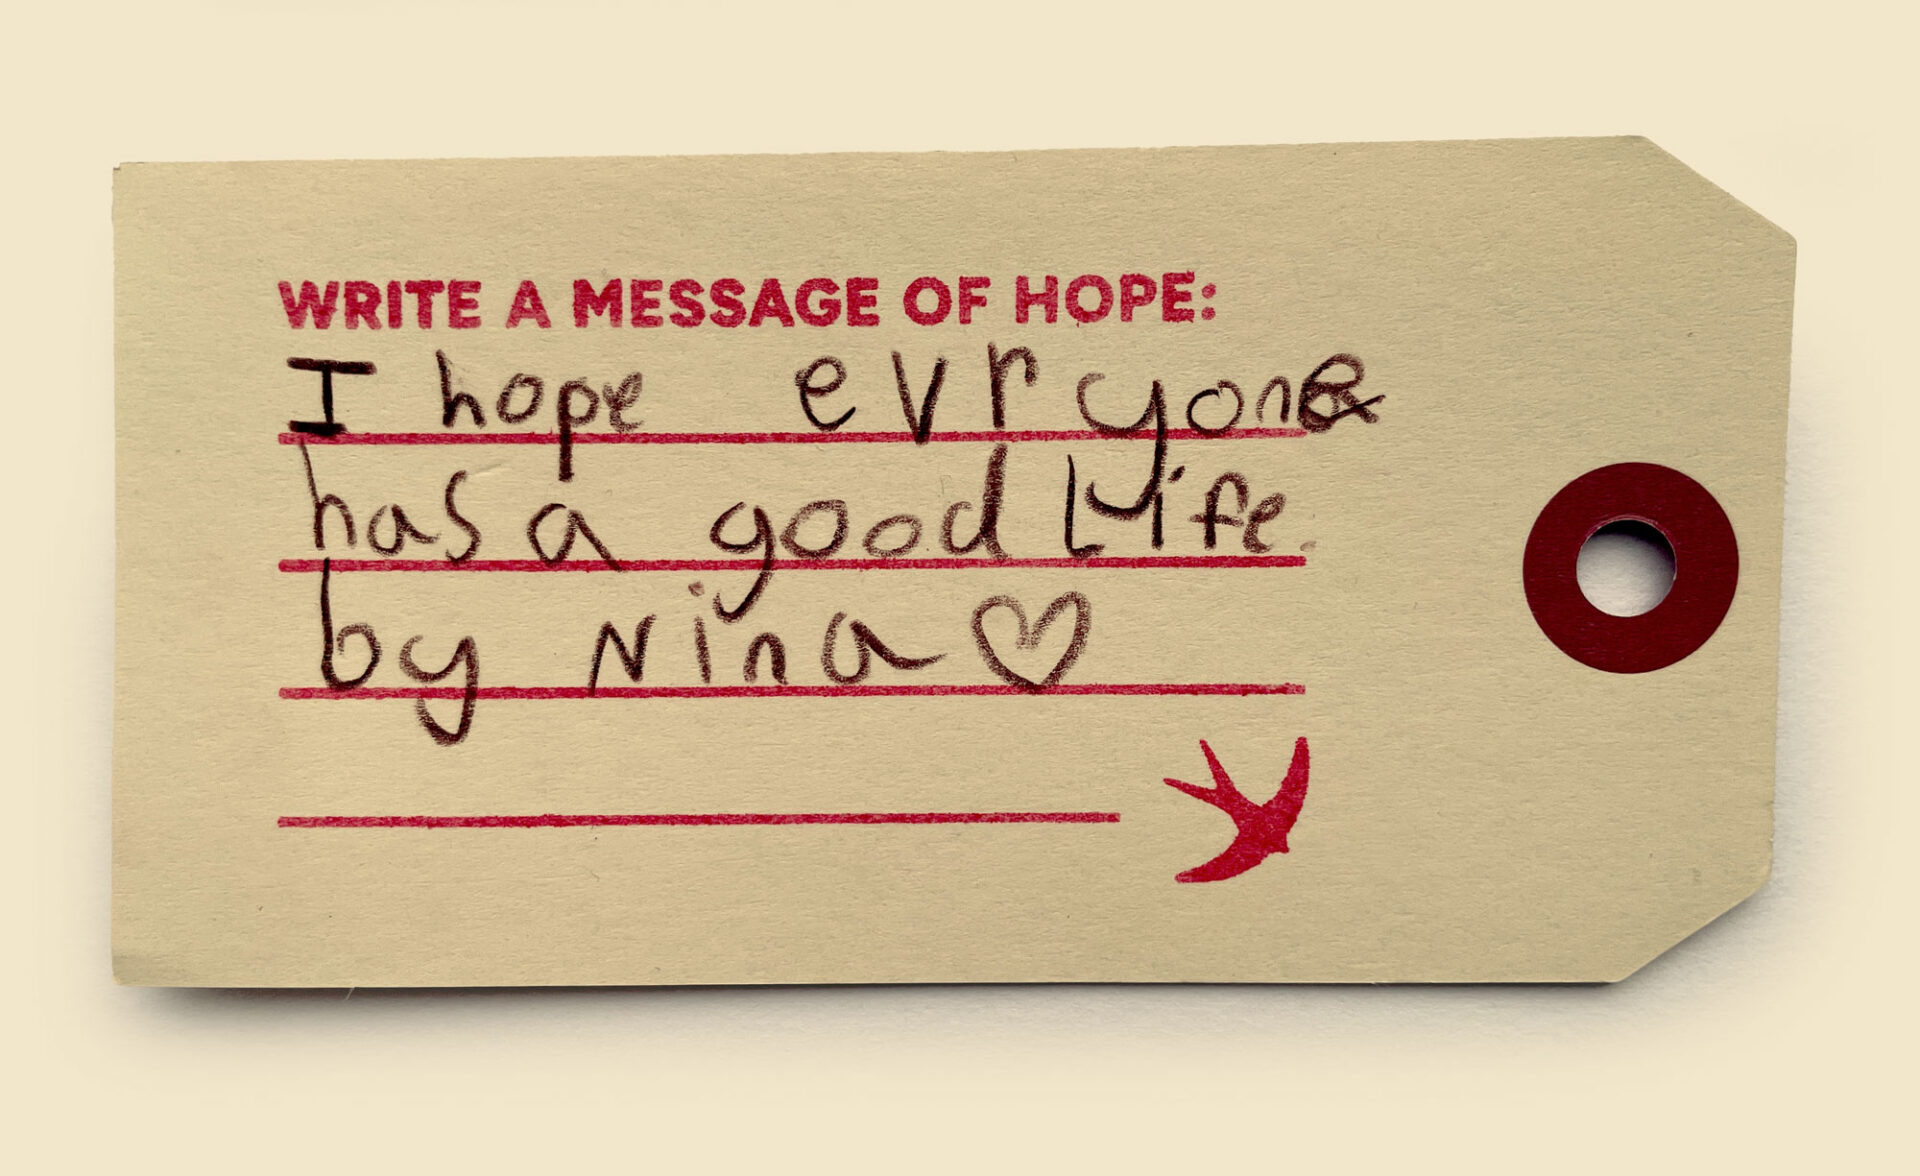 WRITE A MESSAGE OF HOPE:
I hope evryone
has a good Life.
by Nina ♡